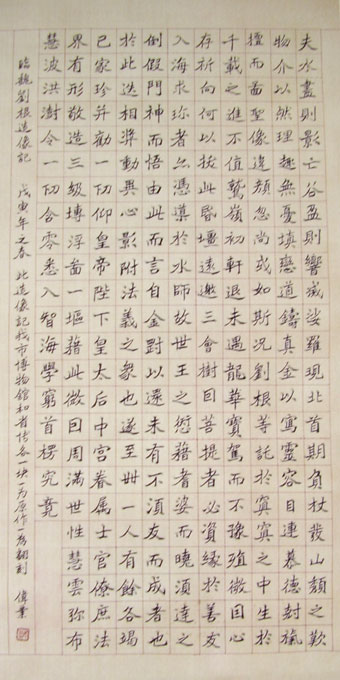 夫水盡則影亡谷盈則響滅娑羅現北首期負杖發山頹之歎
物介以然理趣無憂填戀道鑄真金以寫靈容目連慕德封旃
檀而圖聖像違顏忽尚或如斯況劉根等託於冥冥之中生於
千載之進不值鷲嶺初軒退未遇龍華寶駕而不豫殖微因心
存祈向何以拔此昏壃遠邀三會樹因菩提者必資緣於善友
入海求珍者亦憑導於水師故世王之愆藉耆婆而曉須達之
倒假門神而悟由此而言自金對以還未有不須友而成者也
於此迭相獎動異心影附法義之眾也遂至卅一人有餘各竭
己家珍并勸一切仰皇帝陛下皇太后中宮眷属士官僚庶法
界有形敬造三級塼浮啚一堀藉此微因周滿世性慧雲弥布
慧波洪澍令一切含零悉入智海學窮首楞究竟
臨魏劉根造像記 戊寅年之春 此造像記我市博物館和省博各一块一為原作一為翻刻 偉業